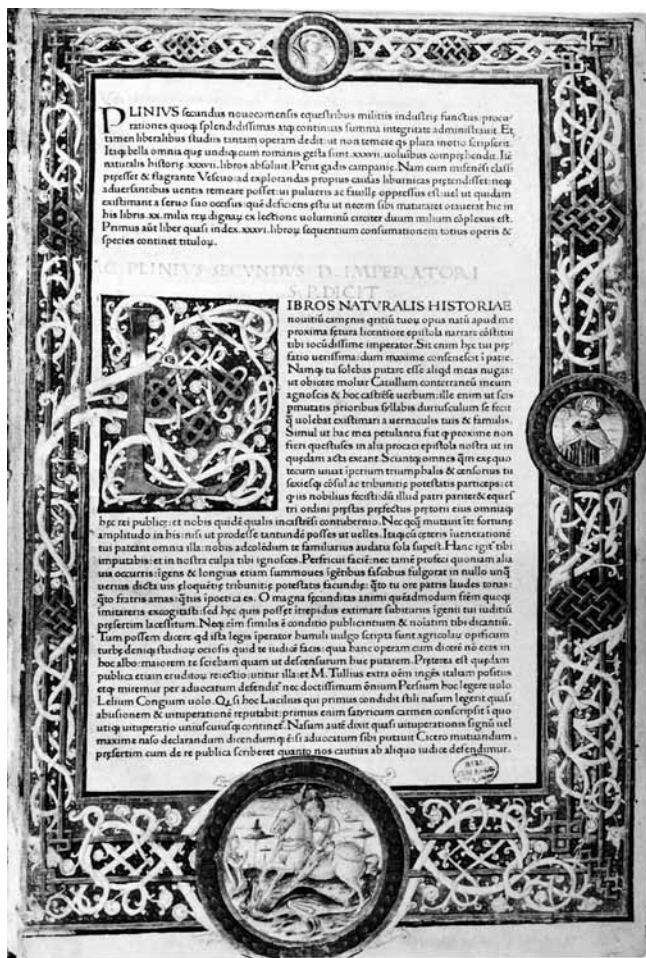 PLINIVS secundus nouocomensis equestribus militiis industrię functus: procu-
rationes quoqƺ splendidissimas atqƺ continuas summa integritate administrauit. Et
tamen liberalibus studiis tantam operam dedit: ut non temere qs plura inotio scripserit.
Itaqƺ bella omnia quę undiqƺ cum romanis gesta sunt .xxxvii. uoluībus comprehendit. Itē
naturalis historię .xxxvii. libros absoluit. Periit gadis campanię. Nam cum misenēsi classi
pręesset & flagrante Vesuuo: ad explorandas propius causas liburnicas prętendisset: neqƺ
aduersantibus uentis remeare posset: ui pulueris ac fauillę oppressus est: uel ut quidam
existimant a seruo suo occisus: quē deficiens ęstu ut necem sibi maturaret orauerat hic in
his libris .xx. milia reꝝ dignaꝝ ex lectione uoluminū circiter duum milium cōplexus est.
Primus aūt liber quasi index .xxxvi. libroꝝ sequentium consumationem totius operis &
species continet tituloꝝ.
PLINIVS SECVNDVS D. IMPERATORI
S. P. DICIT
LIBROS NATVRALIS HISTORIAE
nouitiū camęnis qritiū tuoꝝ opus natū apud me
proxima fętura licentiore epistola narrare cōstitui
tibi iocūdissime imperator. Sit enim hęc tui prę-
fatio uerissima: dum maxime consenescit ī patre.
Namqƺ tu solebas putare esse aliqd meas nugas:
ut obicere moliar Catullum conterraneū meum
agnoscis & hoc castrēse uerbum: ille enim ut scis
pmutatis prioribus syllabis duriusculum se fecit
q̄ uolebat existimari a uernaculis tuis & famulis.
Simul ut hac mea petulantia fiat qƺ proxime non
fieri questus es in alia procaci epistola nostra ut in
quędam acta exeant. Sciantqƺ omnes q̄m exęquo
tecum uiuat īperium triumphalis & censorius tu
sexiesqƺ cōsul ac tribunitię potestatis particeps: et
qƺ iis nobilius fecisti: dū illud patri pariter & equestri
ordini pręstas pręfectus prętorii eius omniaqƺ
hęc rei publicę: et nobis quidē qualis incastrēsi contubernio. Necqcq̄ mutauit ī te fortunę
amplitudo in his: nisi ut prodesse tantundē posses ut uelles. Itaqƺ cū cęteris iuenerationē
tui pateant omnia illa: nobis adcolēdum te familiarius audatia sola supest. Hanc igit͛ tibi
imputabis: et in nostra culpa tibi ignosces. Perfricui faciē: nec tamē profeci quoniam alia
uia occurris: īgens & longius etium summoues īgētibus fascibus fulgorat in nullo unq̄
uerius dicta uis eloquētię tribunitię potestatis facundię: q̄to tu ore patris laudes tonas:
q̄to fratris amas: q̄tus ipoetica es. O magna fęcunditas animi quēadmodum frēm quoqƺ
imitareris excogitasti: sed hęc quis posset ītrepidus extimare subiturus īgenii tui iuditiū
pręsertim lacessitum. Neqƺ eīm similis ē conditio publicantium & noīatim tibi dicantiū.
Tum possem dicere qd ista legis īperator humili uulgo scripta sunt agricolaꝝ opificum
turbę deniqƺ studioꝝ ociosis quid te iudicē facis: qua hanc operam cum dicerē nō eras in
hoc albo: maiorem te sciebam quam ut descensurum huc putarem. Pręterea est quędam
publica etium eruditoꝝ reiectio: utitur illa: et M. Tullius extra oēm ingēs italiam positus
et qƺ miremur per aduocatum defendit͛ nec doctissimum ōnium Persium hoc legere uolo
Lelium Congium uolo. Q̄ si hoc Lucilius qui primus condidit stili nasum legerit quasi
abusionem & uituperationē reputabit: primus enim satyricum carmen conscripsit ī quo
utiqƺ uituperatio uniuscuiusqƺ continet͛. Nasum autē dixit quasi uituperationis signū uel
maxime naso declarandum dicendumqƺ ē: si aduocatum sibi putauit Cicero mutuandum
pręsertim cum de re publica scriberet quanto nos cautius ab aliquo iudice defendimur.